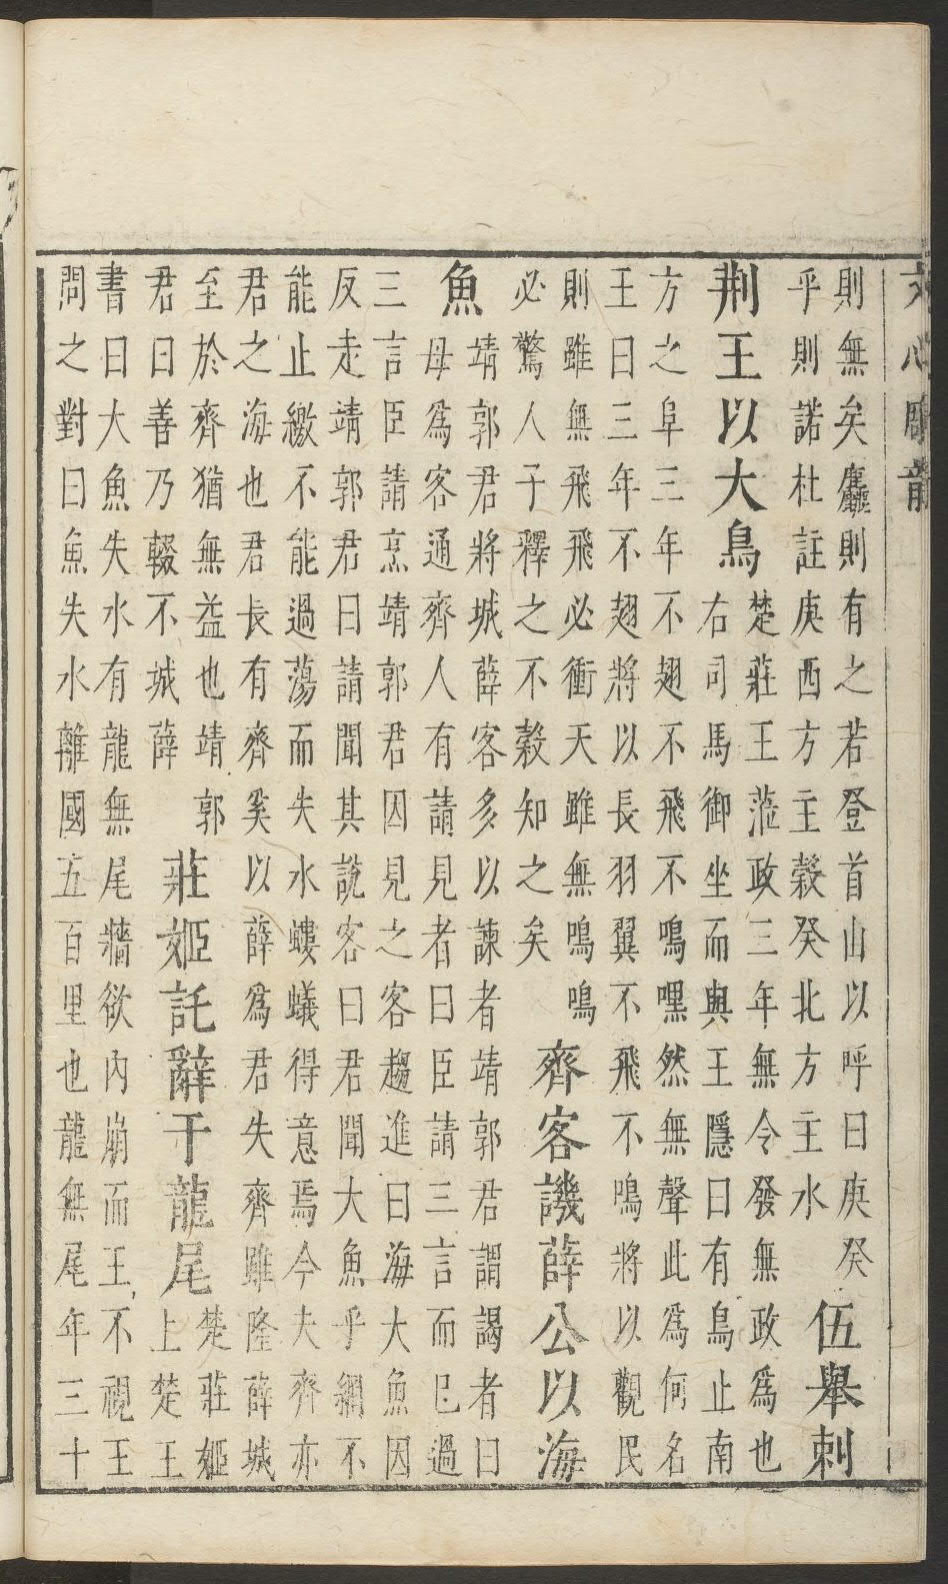 文心雕龍
則無矣麤則有之若登首山以呼曰庚癸
乎則諾杜註庚西方主穀癸北方主水
伍舉刺
荆王以大鳥
楚莊王蒞政三年無令發無政爲也
右司馬御坐而與王隱曰有鳥止南
方之阜三年不翅不飛不鳴嘿然無聲此爲何名
王曰三年不翅將以長羽翼不飛不鳴將以觀民
則雖無飛飛必衝天雖無鳴鳴
必驚人子釋之不穀知之矣
齊客譏薛公以海
魚
靖郭君將城薛客多以諫者靖郭君謂謁者曰
母爲客通齊人有請見者曰臣請三言而已過
三言臣請烹靖郭君因見之客趨進曰海大魚因
反走靖郭君曰請聞其說客曰君聞大魚乎網不
能止繳不能過蕩而失水螻蟻得意焉今夫齊亦
君之海也君長有齊奚以薛爲君失齊雖隆薛城
至於齊猶無益也靖郭
君曰善乃輟不城薛
莊姬託辭于龍尾
楚莊姬
上楚王
書曰大魚失水有龍無尾牆欲內崩而王不視王
問之對曰魚失水離國五百里也龍無尾年三十